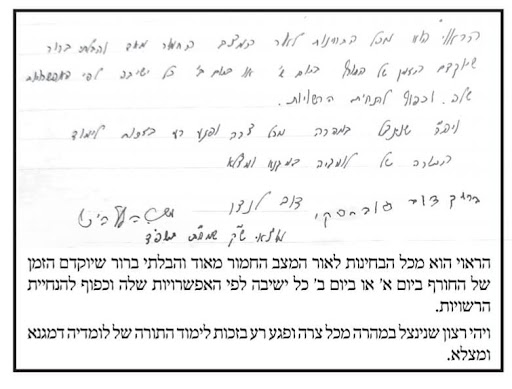 הראוי הוא מכל הבחינות לאור המצב החמור מאד והבלתי ברור
שיוקדם הזמן של החורף ביום א' או ביום ב' כל ישיבה לפי האפשרויות
שלה. וכפוף להנחית הרשויות.
ויה"ר שננצל במהרה מכל צרה ופגע רע בזכות לימוד
התורה של לומדיה דמגנא ומצלא
ברוך דוב פוברסקי דוב לנדו
מוצאי ש"ק תשפ"ד
הראוי הוא מכל הבחינות לאור המצב החמור מאוד והבלתי ברור שיוקדם הזמן
של החורף ביום א' או ביום ב' כל ישיבה לפי האפשרויות שלה וכפוף להנחיית
הרשויות.
ויהי רצון שנינצל במהרה מכל צרה ופגע רע בזכות לימוד התורה של לומדיה דמגנא
ומצלא.